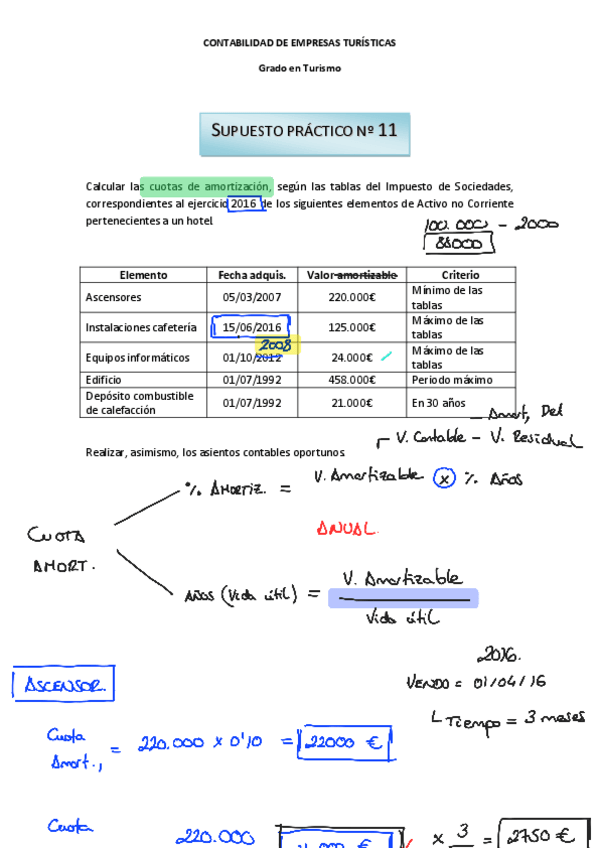 CONTABILIDAD DE EMPRESAS TURÍSTICAS
Grado en Turismo
SUPUESTO PRÁCTICO Nº 11
Calcular las cuotas de amortización, según las tablas del Impuesto de Sociedades,
correspondientes al ejercicio 2016 de los siguientes elementos de Activo no Corriente
pertenecientes a un hotel.
100.000 - 2000
Elemento Fecha adquis. Valor amortizable Criterio
Ascensores 05/03/2007 220.000€ Mínimo de las tablas
Instalaciones cafetería 15/06/2016 125.000€ Máximo de las tablas
2008
Equipos informáticos 01/10/2012 24.000€ Máximo de las tablas
Edificio 01/07/1992 458.000€ Periodo máximo
Depósito combustible de calefacción 01/07/1992 21.000€ En 30 años
- Amort, Del
V. Contable - V. Residual
Realizar, asimismo, los asientos contables oportunos.
% AMORTIZ. = V. Amortizable x % Años
CUOTA
AMORT.
ANUAL.
AÑOS (Vida útil) = V. Amortizable
Vida útil
2016.
VENDO = 01/04/16
Tiempo = 3 meses
ASCENSOR.
Cuota
Amort., = 220.000 x 0'10 = 22000 €
Cuota
220.000
x 3 = 2750 €